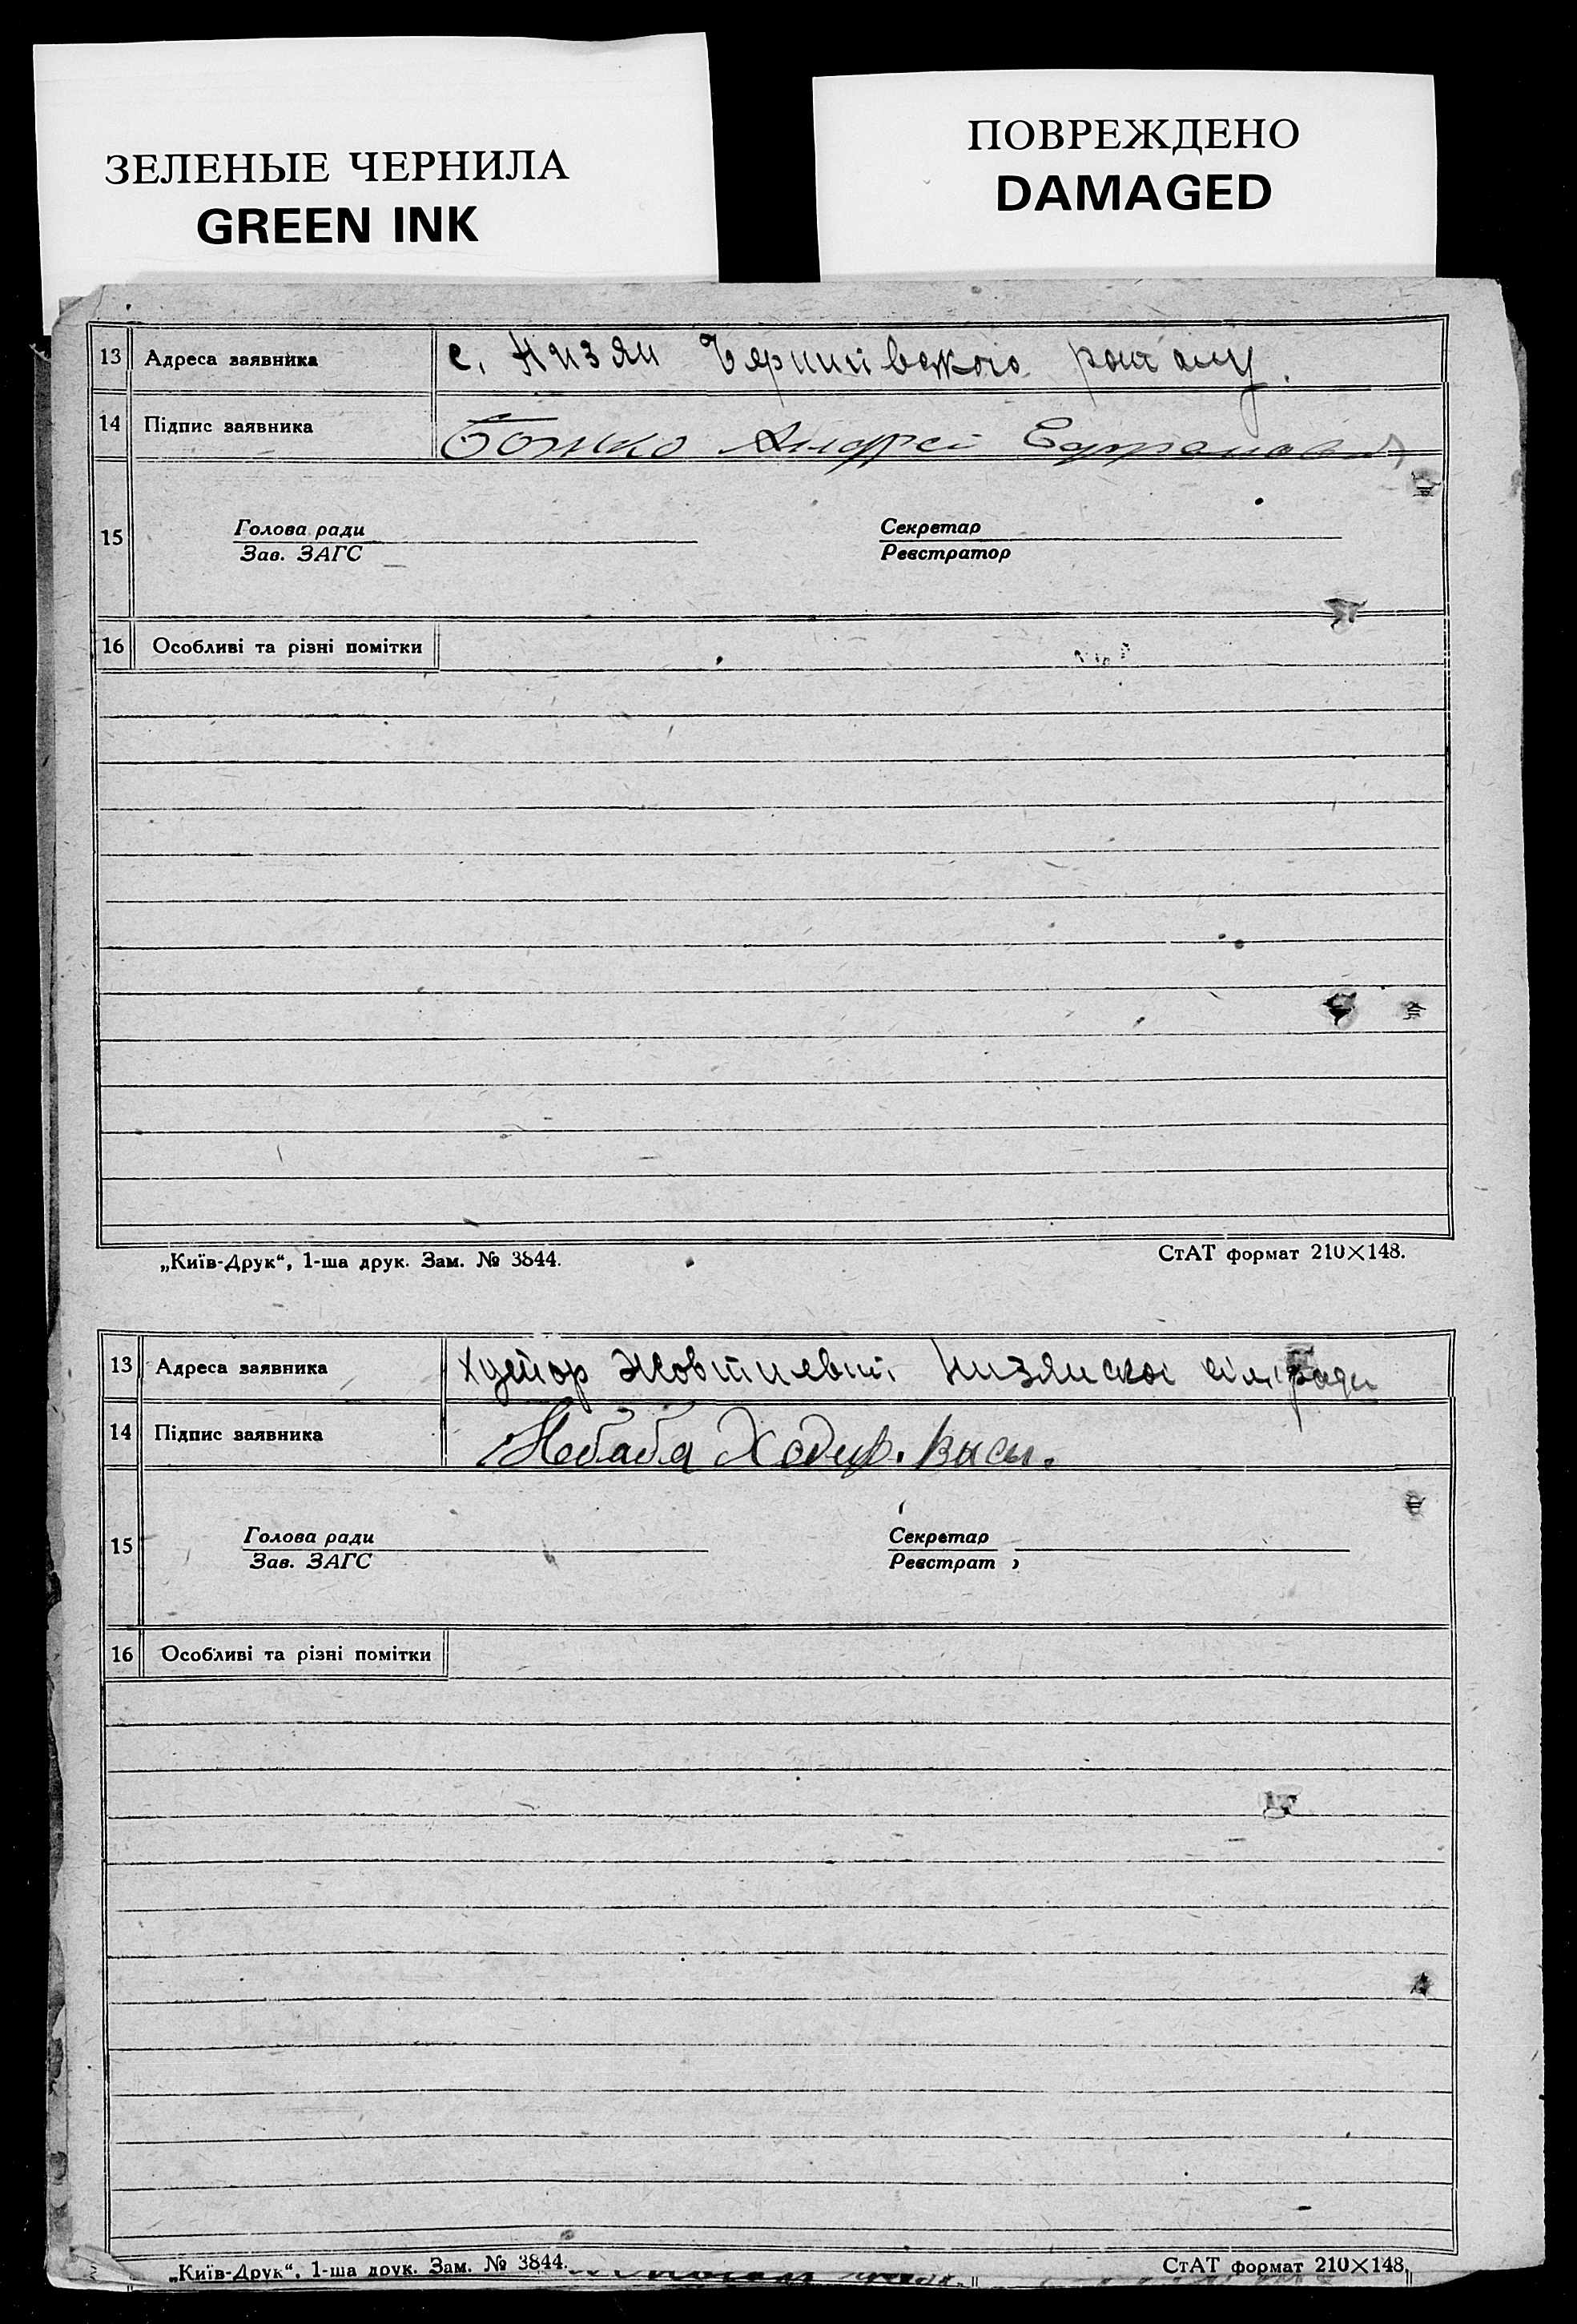 ЗЕЛЕНЫЕ ЧЕРНИЛА
GREEN INK
ПОВРЕЖДЕНО
DAMAGED
13 Адреса заявника с. Низян Чернигівського району.
14 Підпис заявника Божко Андрей
15 Голова ради Секретар
Зав. ЗАГС Реєстратор
16 Особливі та різні помітки
„Київ-Друк“, 1-ша друк. Зам. № 3844. СтАТ формат 210×148.
13 Адреса заявника Хутор Низянскої сілради
14 Підпис заявника Небаба
15 Голова ради Секретар
Зав. ЗАГС Реєстрат
16 Особливі та різні помітки
„Київ-Друк“, 1-ша друк. Зам. № 3844. СтАТ формат 210×148.